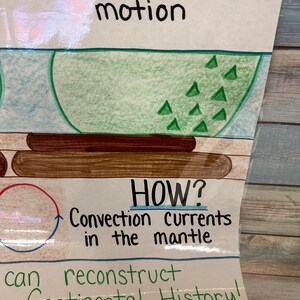 motion
HOW?
Convection currents
in the mantle
can reconstruct
Continental History!